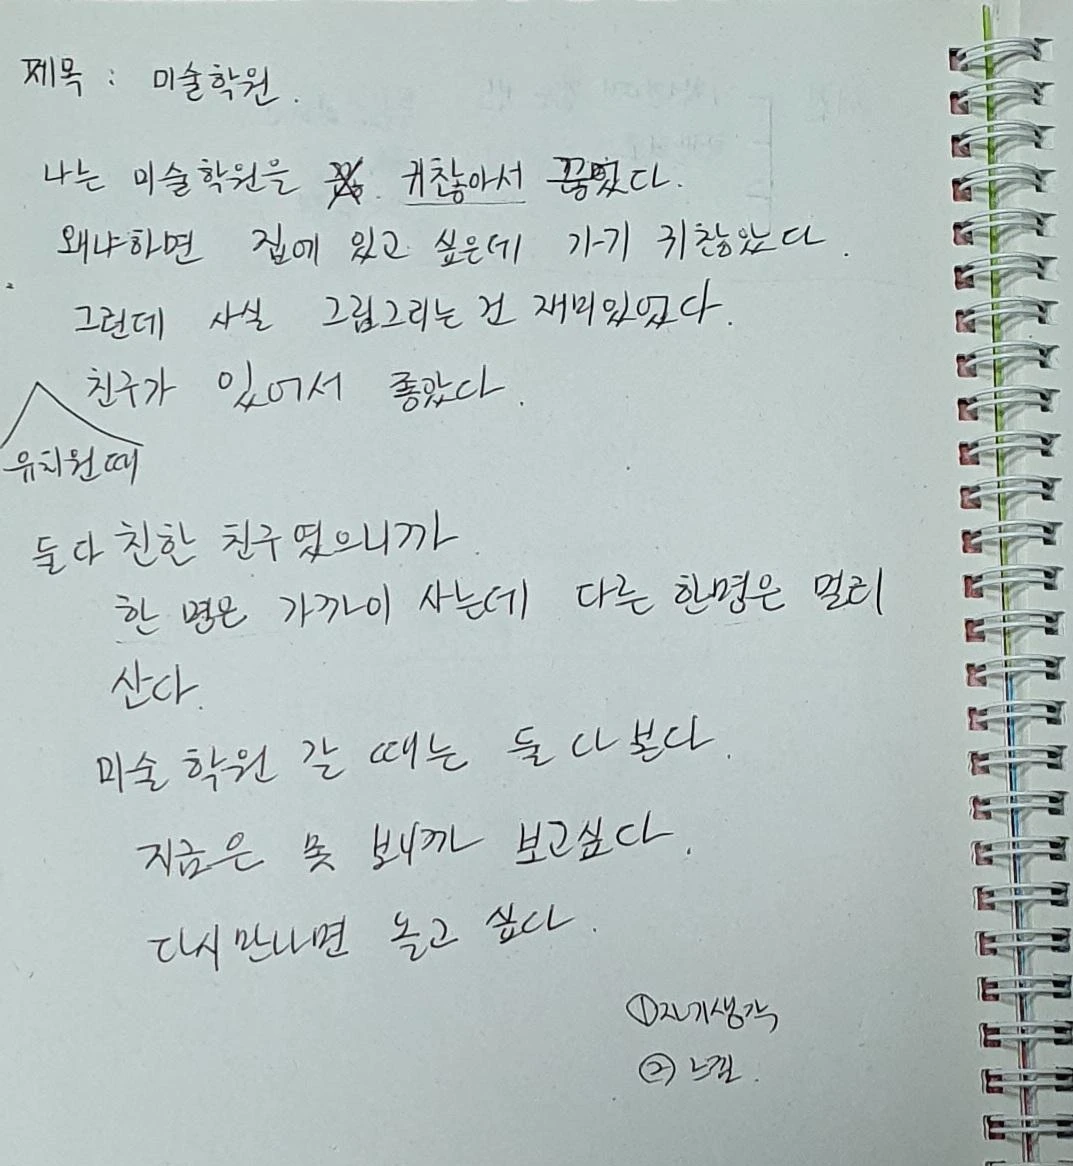 제목 : 미술학원.
나는 미술학원을 귀찮아서 끊었다.
왜냐하면 집에 있고 싶은데 가기 귀찮았다.
그런데 사실 그림그리는 건 재미있었다.
친구가 있어서 좋았다.
유치원때
둘다 친한 친구였으니까
한 명은 가까이 사는데 다른 한명은 멀리
산다.
미술학원 갈 때는 둘 다 본다.
지금은 못 보니까 보고싶다.
다시 만나면 놀고 싶다.
①자기생각
② 느낌.